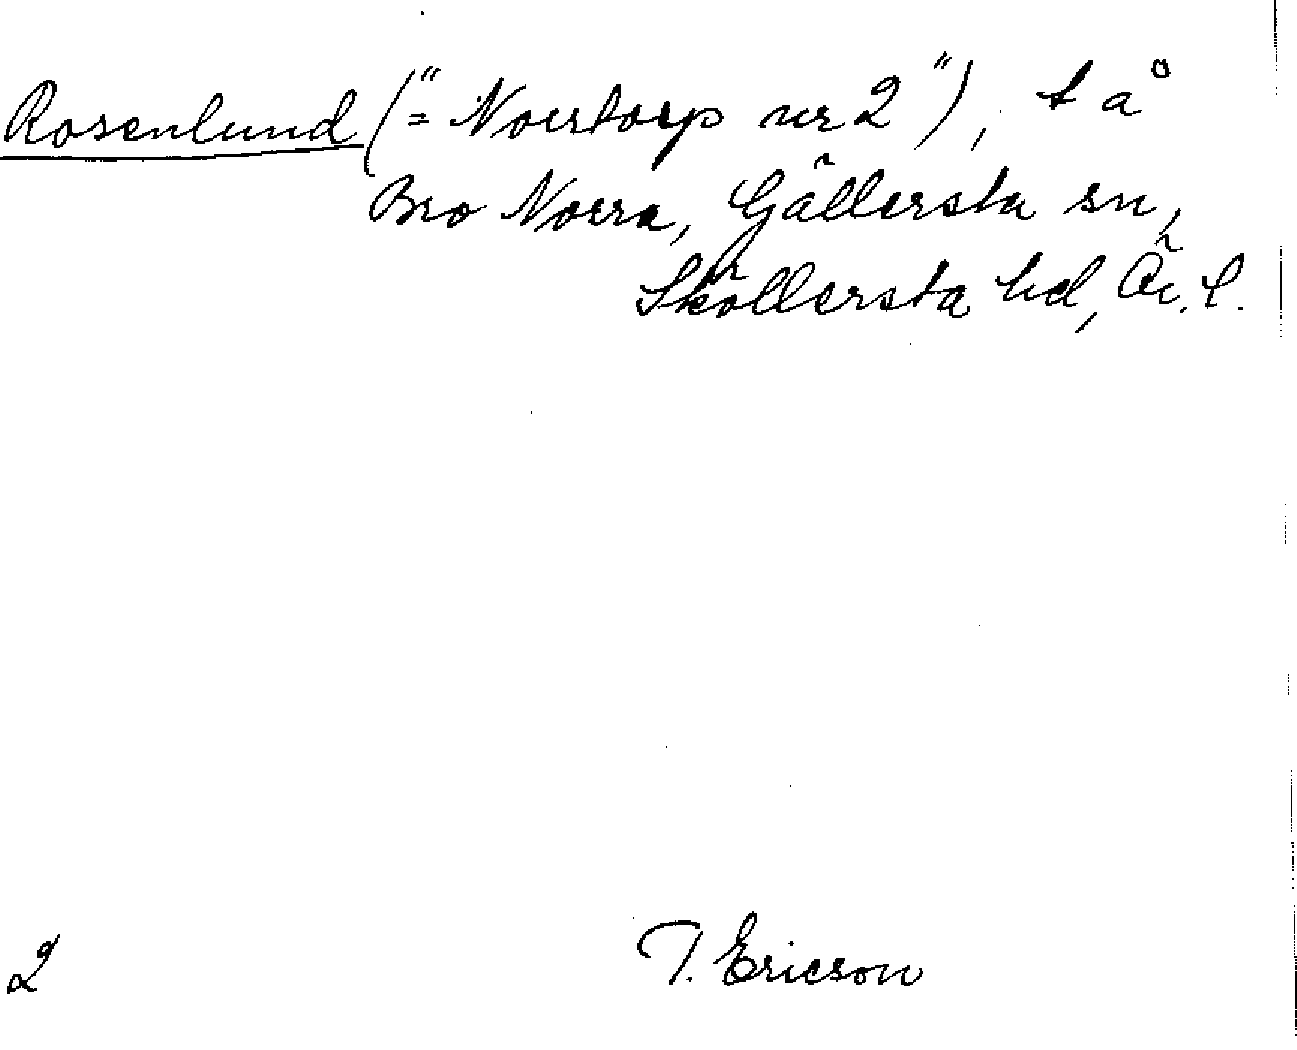 Rosenlund (="Norrtorp nr 2"), t å
Bro Norra, Gällersta sn,
Sköllersta hd, Ör. l.
2
T. Ericson